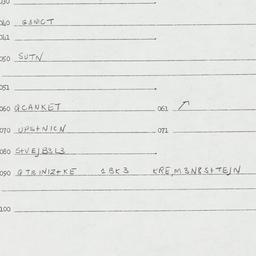 040 GSNCT
041
050 SUTN
051
060 GCANKET 061
070 UPStNICN 071
080 StVEJB3L3
090 GTBINIZtKE 1BK3 KRE,M3NBStTEJN
100